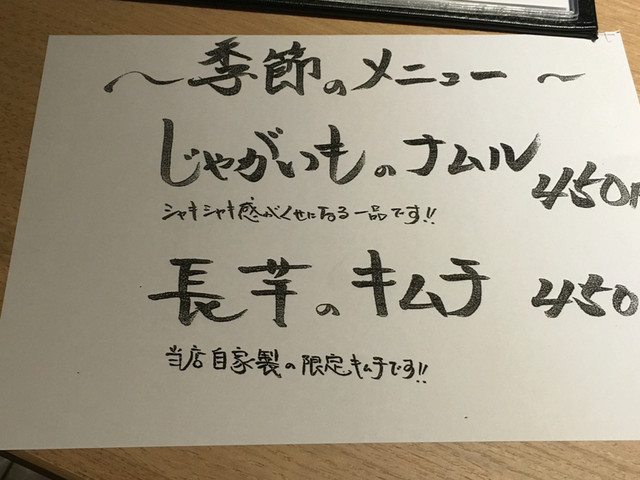 ～季節のメニュー～
じゃがいものナムル 450円
シャキシャキ感がくせになる一品です!!
長芋のキムチ 450
当店自家製の限定キムチです!!